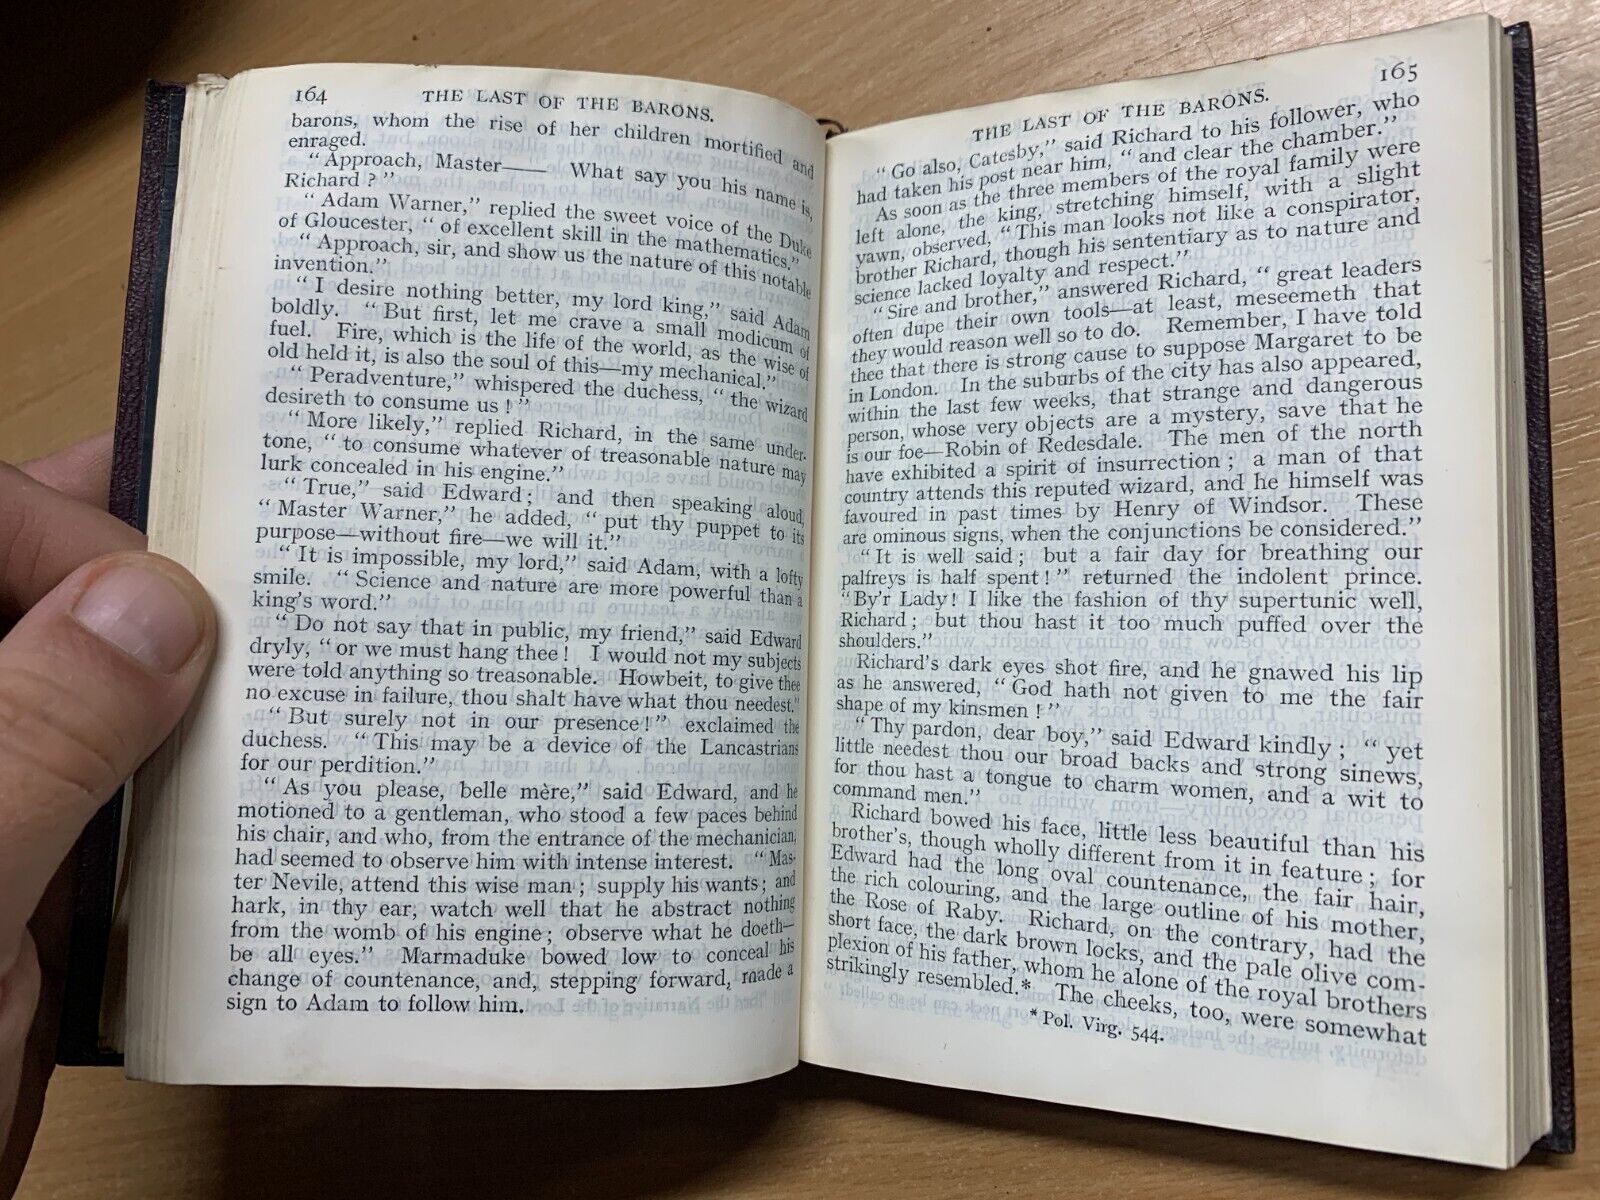 164
THE LAST OF THE BARONS.
barons, whom the rise of her children mortified and
enraged.
“Approach, Master—— What say you his name is,
Richard?”
“Adam Warner,” replied the sweet voice of the Duke
of Gloucester, “of excellent skill in the mathematics.”
“Approach, sir, and show us the nature of this notable
invention.”
“I desire nothing better, my lord king,” said Adam
boldly. “But first, let me crave a small modicum of
fuel. Fire, which is the life of the world, as the wise of
old held it, is also the soul of this—my mechanical.”
“Peradventure,” whispered the duchess, “the wizard
desireth to consume us!”
“More likely,” replied Richard, in the same under-
tone, “to consume whatever of treasonable nature may
lurk concealed in his engine.”
“True,” said Edward; and then speaking aloud,
“Master Warner,” he added, “put thy puppet to its
purpose—without fire—we will it.”
“It is impossible, my lord,” said Adam, with a lofty
smile. “Science and nature are more powerful than a
king’s word.”
“Do not say that in public, my friend,” said Edward
dryly, “or we must hang thee! I would not my subjects
were told anything so treasonable. Howbeit, to give thee
no excuse in failure, thou shalt have what thou needest.”
“But surely not in our presence!” exclaimed the
duchess. “This may be a device of the Lancastrians
for our perdition.”
“As you please, belle mère,” said Edward, and he
motioned to a gentleman, who stood a few paces behind
his chair, and who, from the entrance of the mechanician,
had seemed to observe him with intense interest. “Mas-
ter Nevile, attend this wise man; supply his wants; and
hark, in thy ear, watch well that he abstract nothing
from the womb of his engine; observe what he doeth—
be all eyes.” Marmaduke bowed low to conceal his
change of countenance, and, stepping forward, made a
sign to Adam to follow him.
THE LAST OF THE BARONS.
165
“Go also, Catesby,” said Richard to his follower, who
had taken his post near him, “and clear the chamber.”
As soon as the three members of the royal family were
left alone, the king, stretching himself, with a slight
yawn, observed, “This man looks not like a conspirator,
brother Richard, though his sententiary as to nature and
science lacked loyalty and respect.”
“Sire and brother,” answered Richard, “great leaders
often dupe their own tools—at least, meseemeth that
they would reason well so to do. Remember, I have told
thee that there is strong cause to suppose Margaret to be
in London. In the suburbs of the city has also appeared,
within the last few weeks, that strange and dangerous
person, whose very objects are a mystery, save that he
is our foe—Robin of Redesdale. The men of the north
have exhibited a spirit of insurrection; a man of that
country attends this reputed wizard, and he himself was
favoured in past times by Henry of Windsor. These
are ominous signs, when the conjunctions be considered.”
“It is well said; but a fair day for breathing our
palfreys is half spent!” returned the indolent prince.
“By’r Lady! I like the fashion of thy supertunic well,
Richard; but thou hast it too much puffed over the
shoulders.”
Richard’s dark eyes shot fire, and he gnawed his lip
as he answered, “God hath not given to me the fair
shape of my kinsmen!”
“Thy pardon, dear boy,” said Edward kindly; “yet
little needest thou our broad backs and strong sinews,
for thou hast a tongue to charm women, and a wit to
command men.”
Richard bowed his face, little less beautiful than his
brother’s, though wholly different from it in feature; for
Edward had the long oval countenance, the fair hair,
the rich colouring, and the large outline of his mother,
the Rose of Raby. Richard, on the contrary, had the
short face, the dark brown locks, and the pale olive com-
plexion of his father, whom he alone of the royal brothers
strikingly resembled.* The cheeks, too, were somewhat
* Pol. Virg. 544.